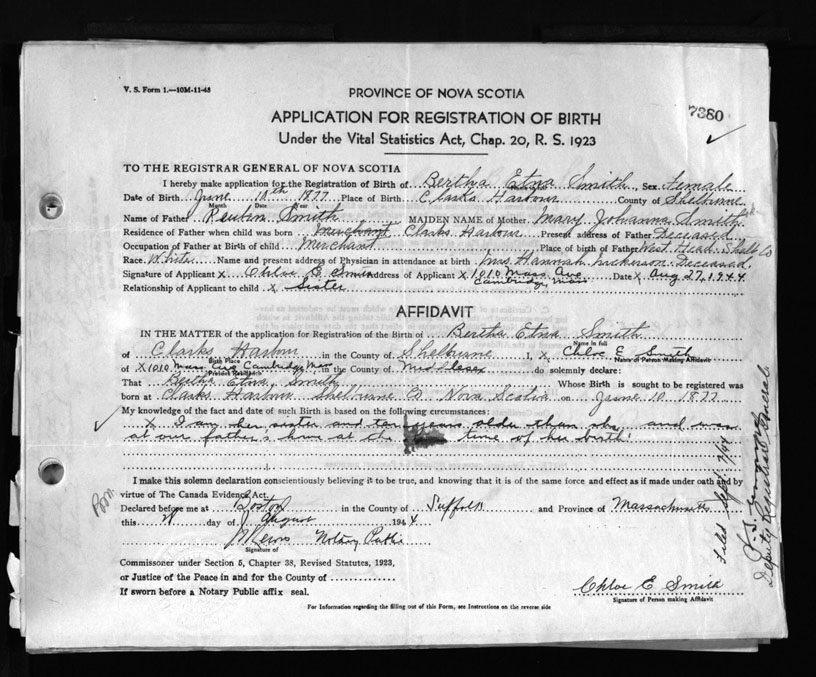 V. S. Form 1.—10M-11-43
PROVINCE OF NOVA SCOTIA
7380
APPLICATION FOR REGISTRATION OF BIRTH
Under the Vital Statistics Act, Chap. 20, R. S. 1923
TO THE REGISTRAR GENERAL OF NOVA SCOTIA
I hereby make application for the Registration of Birth of Bertha Etna Smith, Sex Female
Date of Birth June 10th 1877 Place of Birth Clarks Harbour County of Shelburne
Month Date Year
Name of Father Reuben Smith MAIDEN NAME of Mother Mary Johanna Smith
Residence of Father when child was born Merchant Clarks Harbour Present address of Father Deceased
Occupation of Father at Birth of child Merchant Place of birth of Father West Head Shelb Co
Race White Name and present address of Physician in attendance at birth Mrs. Hannah Nickerson Deceased
Signature of Applicant x Chloe E Smith Address of Applicant x 1010 Mass Ave Date x Aug 27, 1944
Cambridge, Mass
Relationship of Applicant to child x Sister
AFFIDAVIT
IN THE MATTER of the application for Registration of the Birth of Bertha Etna Smith
Name in full
of Clarks Harbour in the County of Shelburne I, x Chloe E Smith
Birth Place Name of Person Making Affidavit
of x 1010 Mass Ave Cambridge Mass in the County of Middlesex do solemnly declare:
Present Residence
That Bertha Etna Smith Whose Birth is sought to be registered was
born at Clarks Harbour Shelburne Co Nova Scotia on June 10 1877
My knowledge of the fact and date of such Birth is based on the following circumstances:
x I am her sister and ten years older than she, and was
at our father's home at the time of her birth.
I make this solemn declaration conscientiously believing it to be true, and knowing that it is of the same force and effect as if made under oath and by
virtue of The Canada Evidence Act.
Declared before me at Boston in the County of Suffolk and Province of Massachusetts
this 28 day of August 1944
Notary Public
Signature of
Commissioner under Section 5, Chapter 38, Revised Statutes, 1923,
or Justice of the Peace in and for the County of
If sworn before a Notary Public affix seal.
Chloe E Smith
Signature of Person making Affidavit
For Information regarding the filling out of this Form, see Instructions on the reverse side
Filed Sept. 7/44
Deputy Registrar General